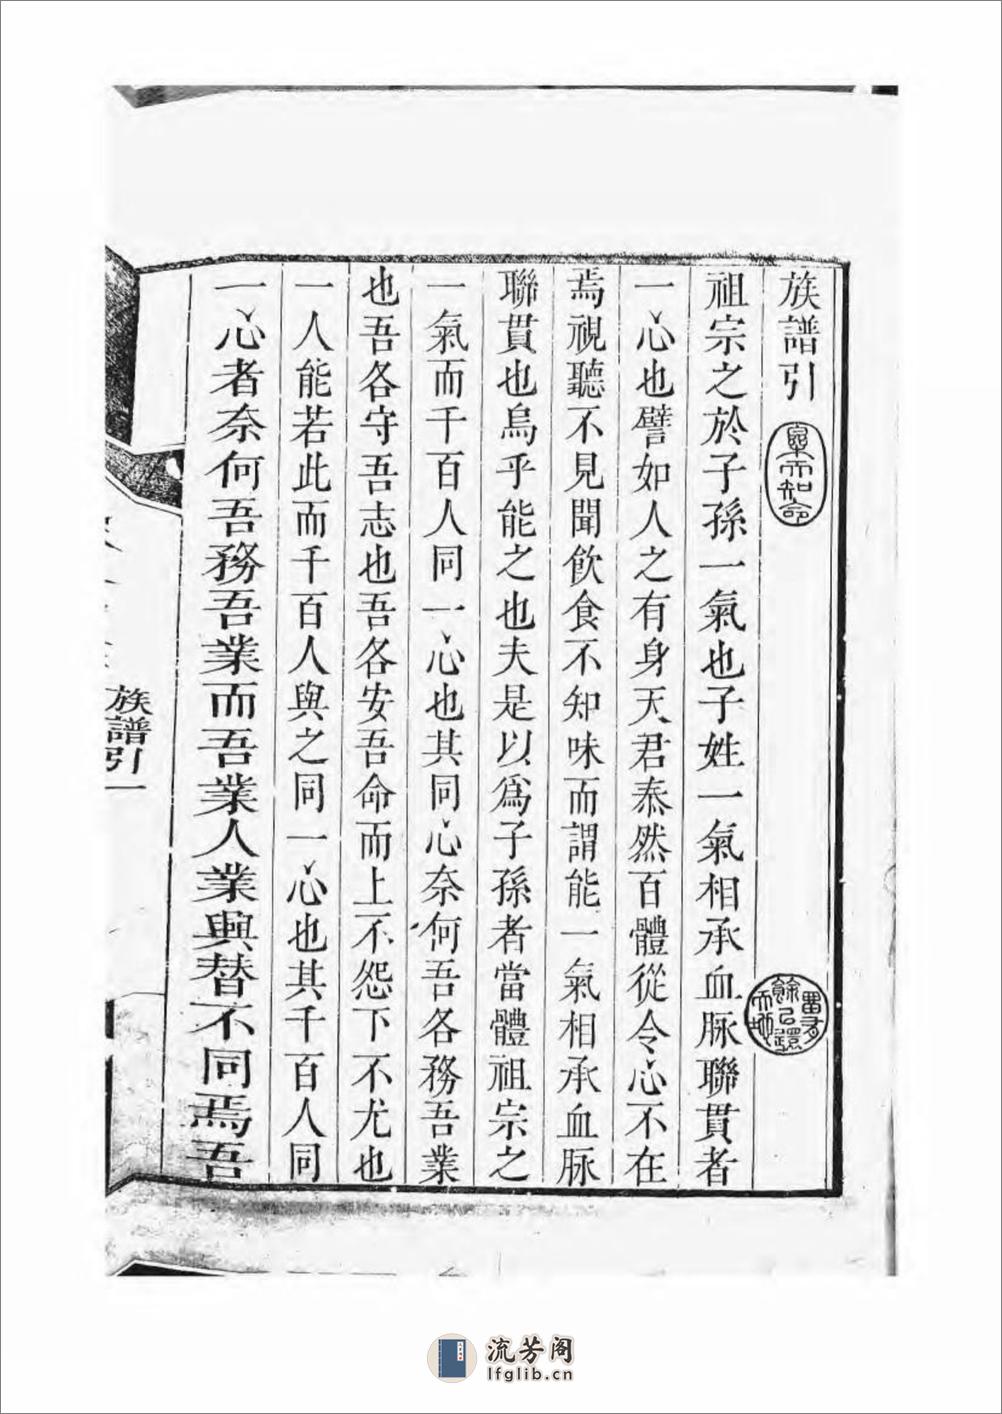 族譜引
祖宗之於子孫一氣也子姓一氣相承血脉聯貫者
一心也譬如人之有身天君泰然百體從令心不在
焉視聽不見聞飲食不知味而謂能一氣相承血脉
聯貫也烏乎能之也夫是以爲子孫者當體祖宗之
一氣而千百人同一心也其同心奈何吾各務吾業
也吾各守吾志也吾各安吾命而上不怨下不尤也
一人能若此而千百人與之同一心也其千百人同
一心者奈何吾務吾業而吾業人業興替不同焉吾
族譜引
一
流芳阁
lfglib.cn